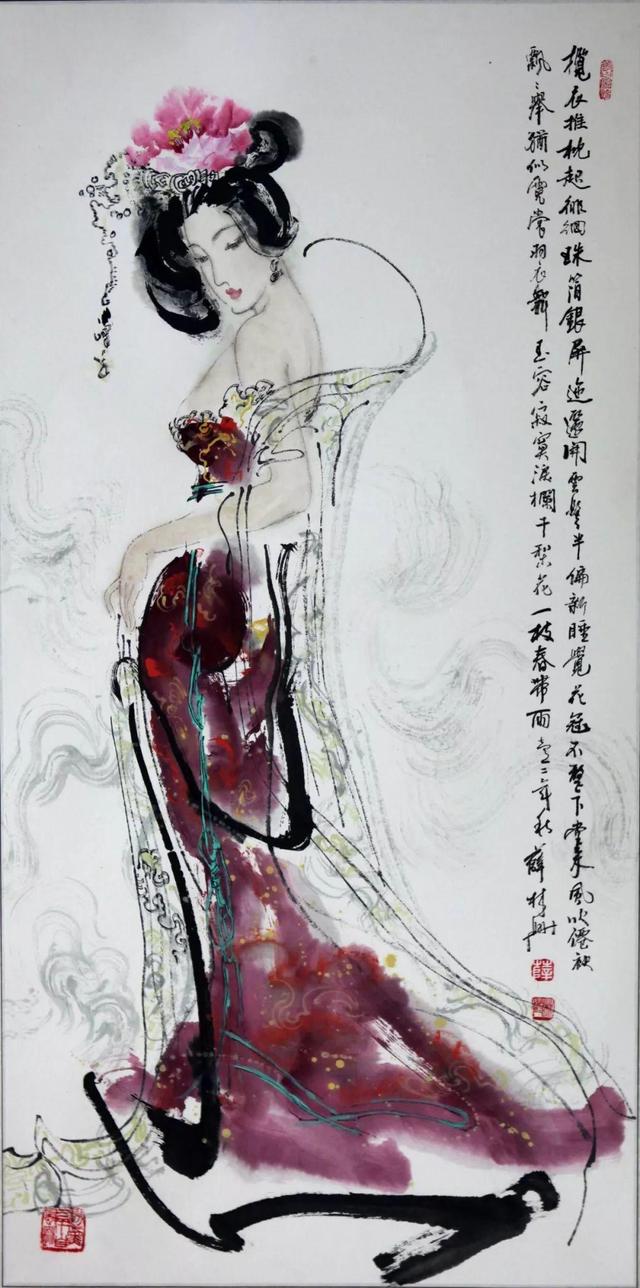 攬衣推枕起徘徊珠箔銀屏迤邐開雲鬢半偏新睡覺花冠不整下堂來風吹僊袂
飄々舉猶似霓裳羽衣舞玉容寂寞淚欄干梨花一枝春帶雨壹二年秋薛林興
薛